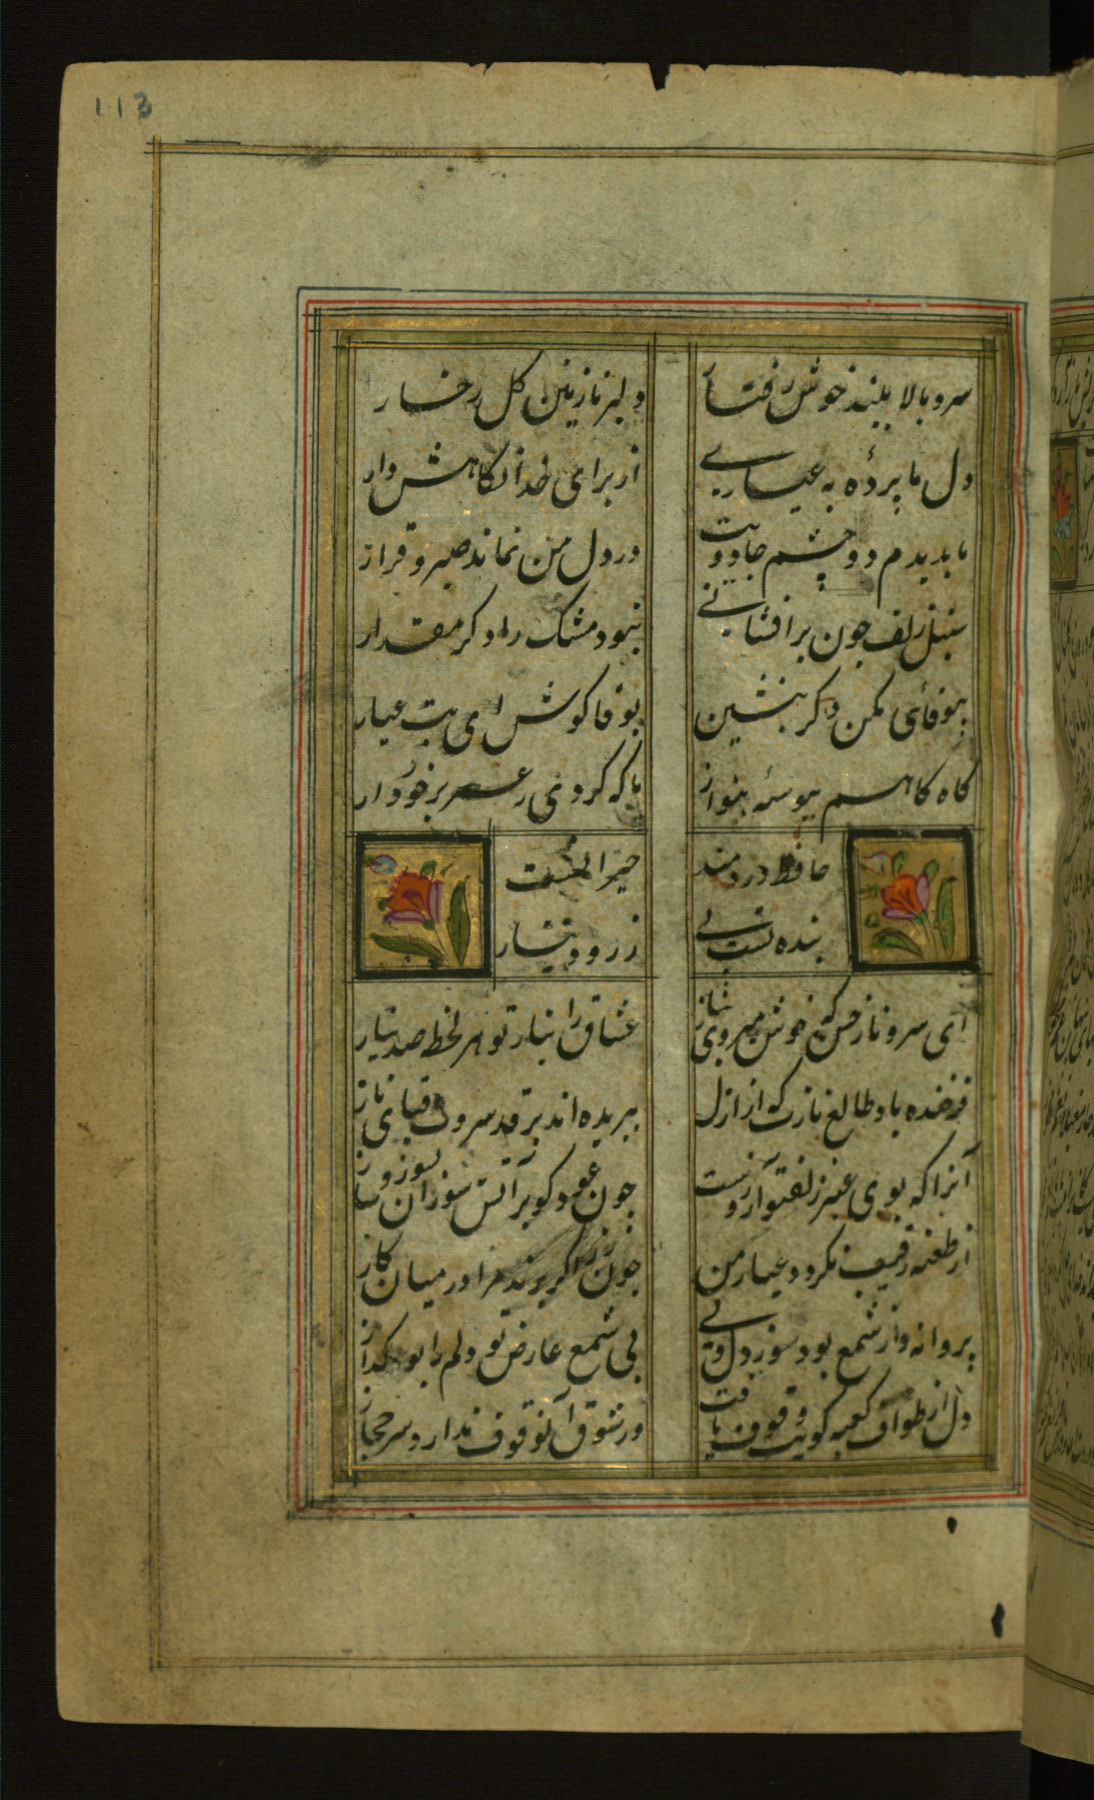 113
سرو بالا بلند خوش رفتار
دلبر نازنین کل رخسار
دل ما بردۀ به عیاریی
از برای خدا نکاهش دار
تا بدیدم دو چشم جادویت
در دل من نماند صبر و قرار
سنبل زلف چون برافشانی
نبود مشک را دکر مقدار
بیوفائی مکن دکر بنشین
بوفا کوش ای بت عیار
کاه کاهم ببوسۀ بنواز
تا که کردی ز عمر برخوردار
حافظ دردمند حیرانست
بندۀ تست بی زر و دینار
ای سرو ناز حسن که خوش میروی بناز
عشاق را بناز تو هر لحظه صد نیاز
فرخنده باد طالع نازت که از ازل
ببریده اند بر قد سروت قبای ناز
آنرا که بوی عنبر زلف تو آرزوست
چون عود کو بر آتش سوزان بسوز و ساز
از طعنه رقیب نکردد عیار من
چون زر اکر برند مرا در میان کاز
پروانه را ز شمع بود سوز دل ولی
بی شمع عارض تو دلم را بود کداز
دل از طواف کعبه کویت وقوف یافت
در شوق آن وقوف ندارد سر حجاز